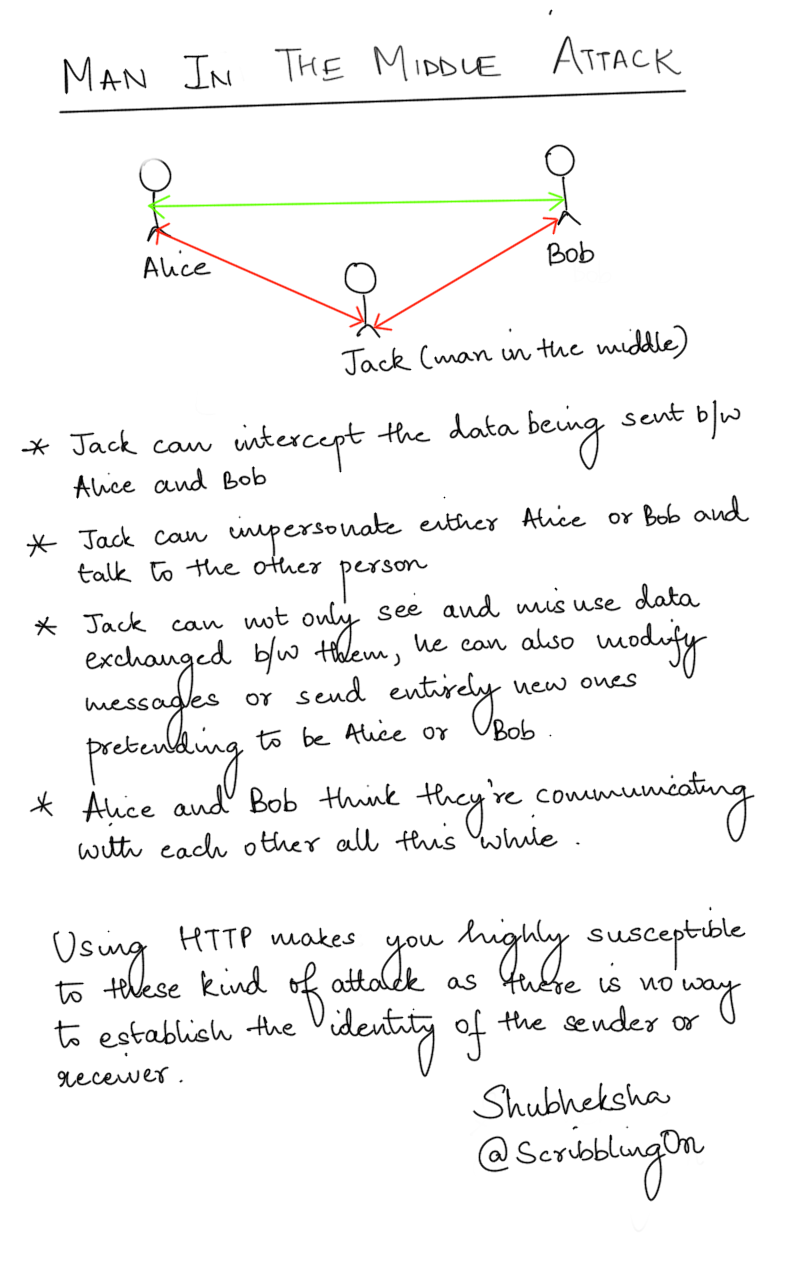 MAN IN THE MIDDLE ATTACK
Alice
Bob
Jack (man in the middle)
* Jack can intercept the data being sent b/w
Alice and Bob
* Jack can impersonate either Alice or Bob and
talk to the other person
* Jack can not only see and misuse data
exchanged b/w them, he can also modify
messages or send entirely new ones
pretending to be Alice or Bob.
* Alice and Bob think they're communicating
with each other all this while.
Using HTTP makes you highly susceptible
to these kind of attack as there is no way
to establish the identity of the sender or
receiver.
Shubheksha
@ScribblingOn